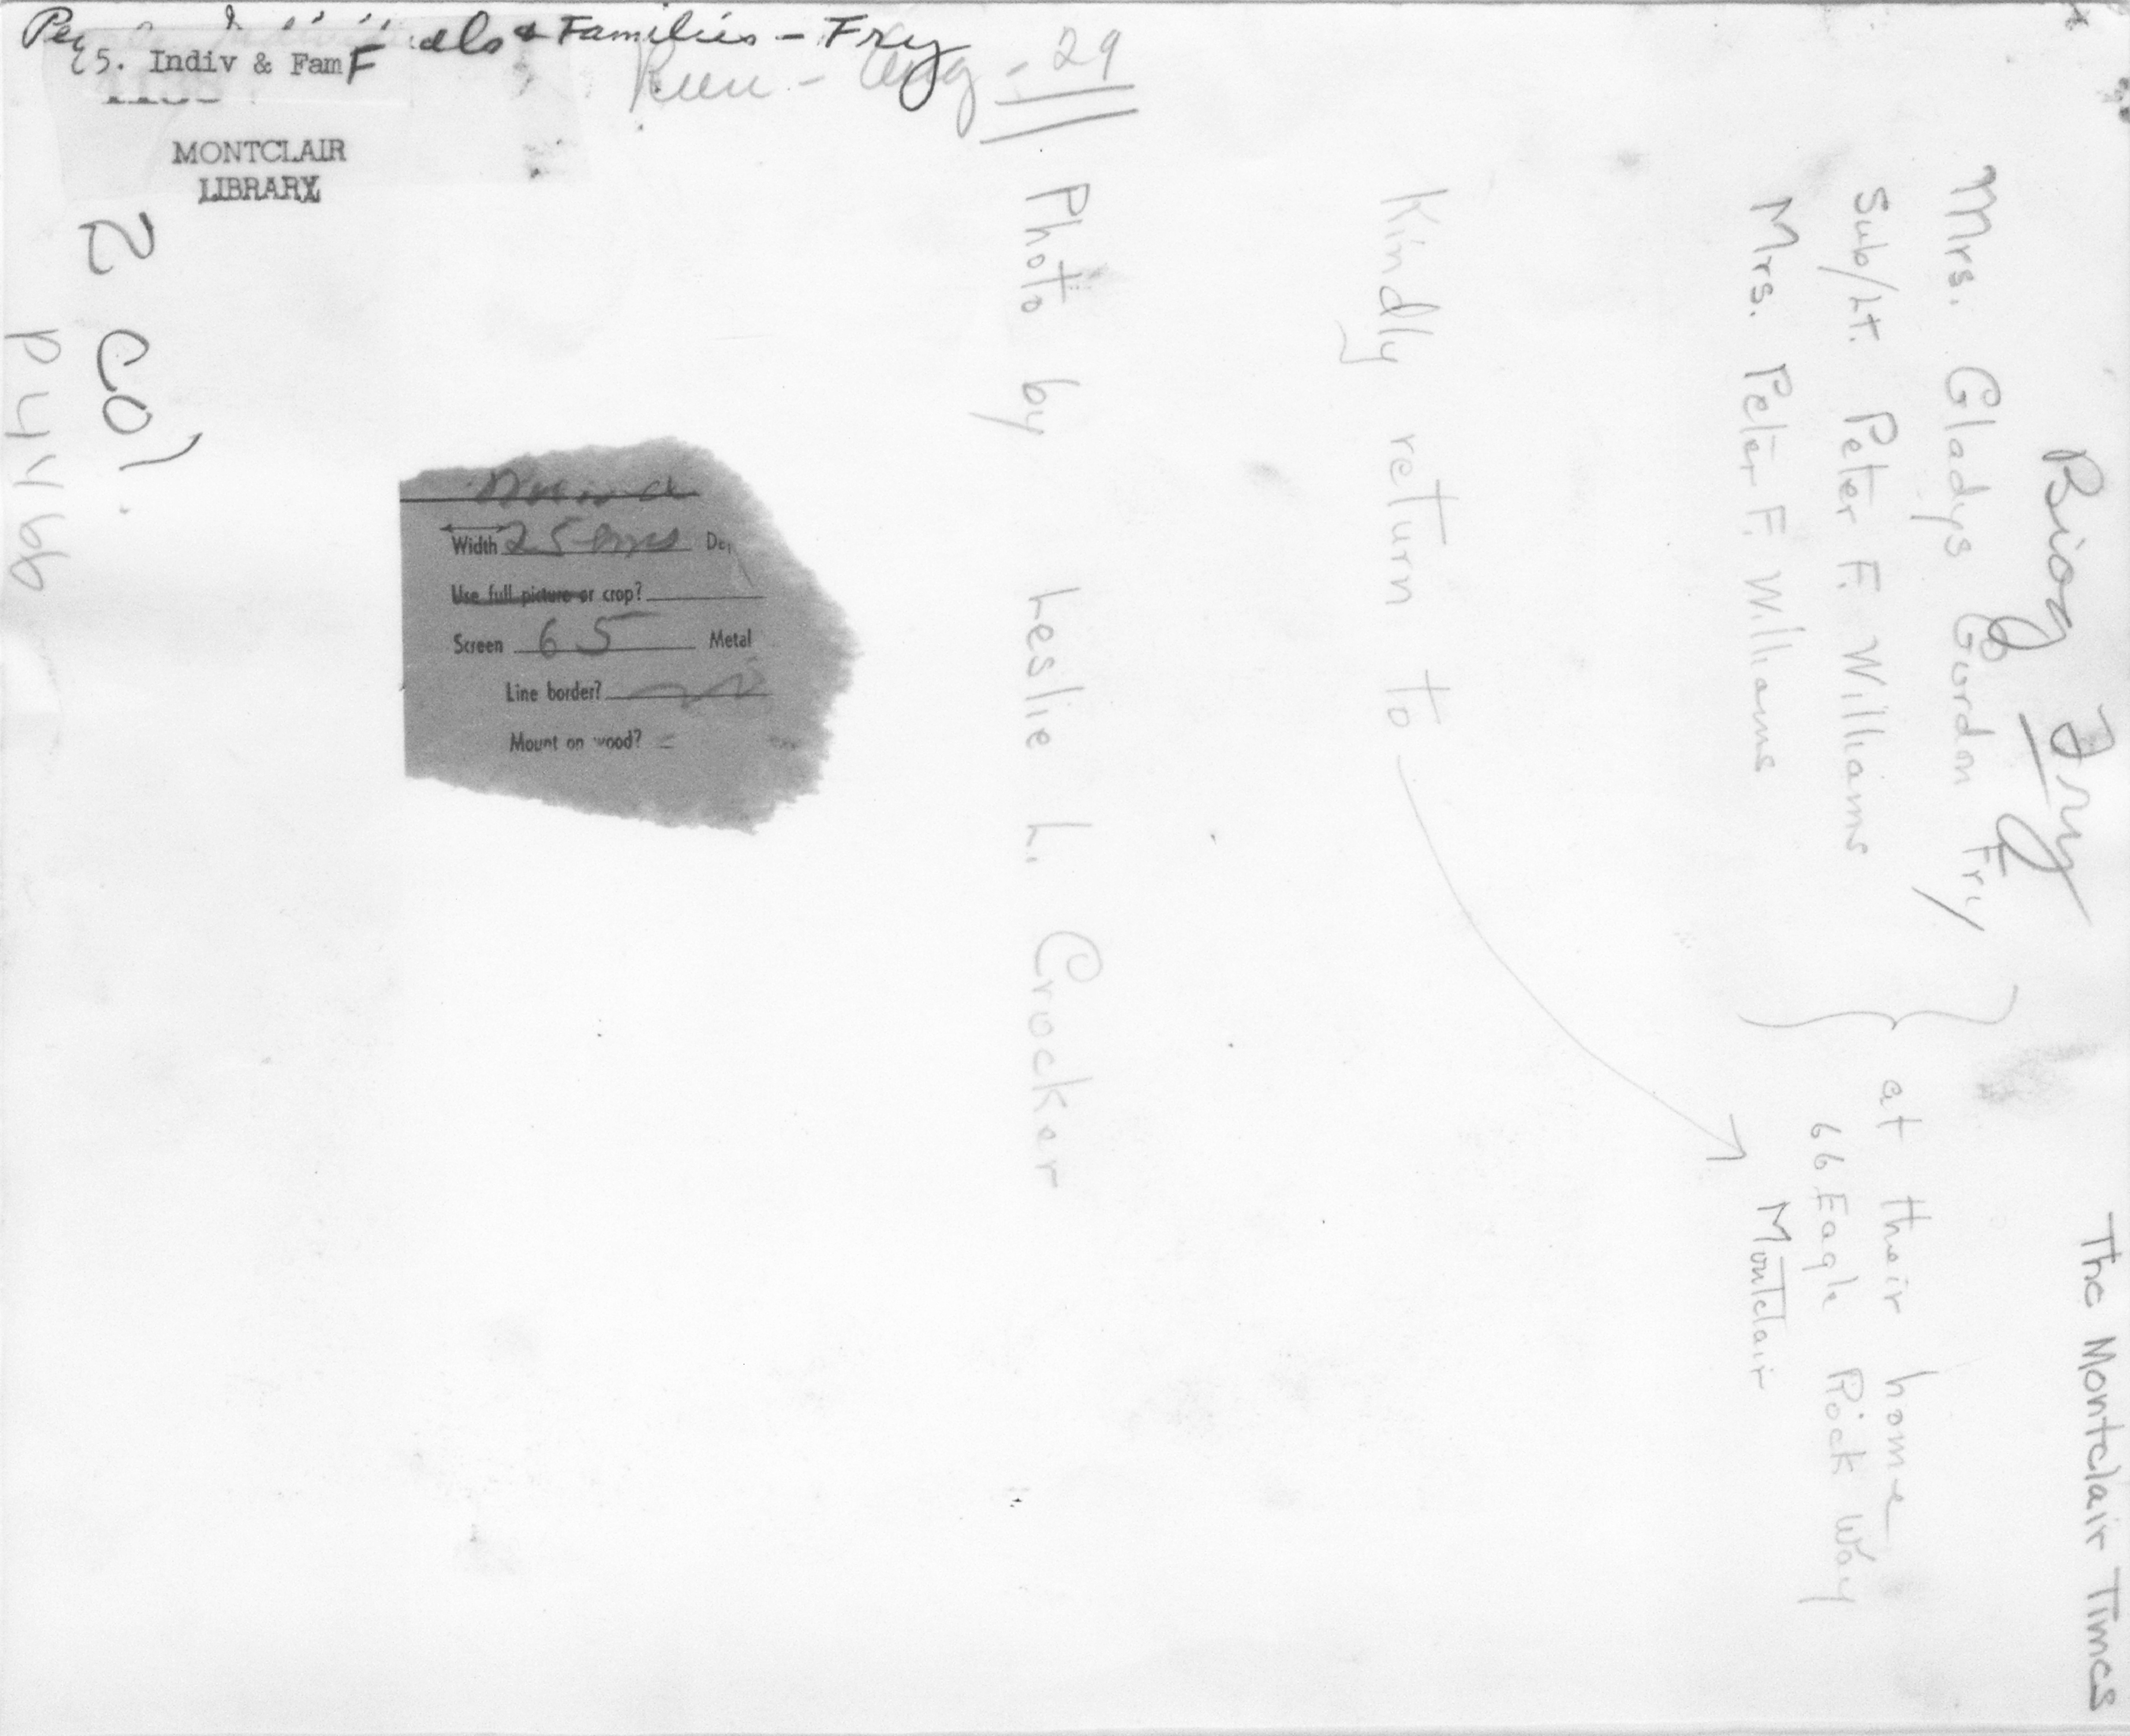 Individuals & Families - Fry
5. Indiv & Fam F
Run - Aug - 29
MONTCLAIR
LIBRARY
2 col.
Width 25 ems
Use full picture or crop?
Screen 65 Metal
Line border? no
Mount on wood?
The Montclair Times
Biog Fry
Mrs. Gladys Gordon Fry
Sub/Lt. Peter F. Williams
Mrs. Peter F. Williams
at their home
66 Eagle Rock Way
Montclair
Kindly return to
Photo by Leslie L. Crocker